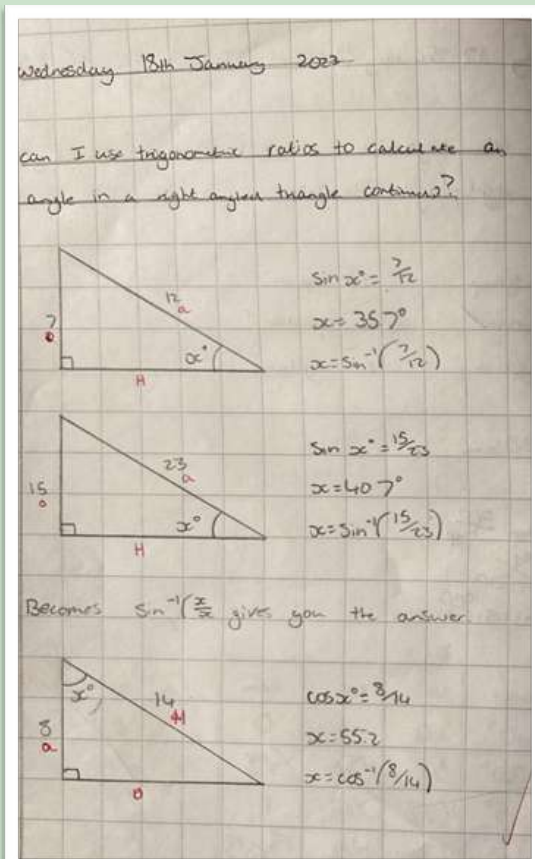 Wednesday 18th January 2023
can I use trigonometric ratios to calculate an
angle in a right angled triangle continued?
7
o
12
a
x°
H
sin x° = 7/12
x = 35.7°
x = sin⁻¹(7/12)
15
o
23
a
x°
H
sin x° = 15/23
x = 40.7°
x = sin⁻¹(15/23)
Becomes sin⁻¹(x/x gives you the answer.
x°
14
H
8
a
o
cos x° = 8/14
x = 55.2
x = cos⁻¹(8/14)